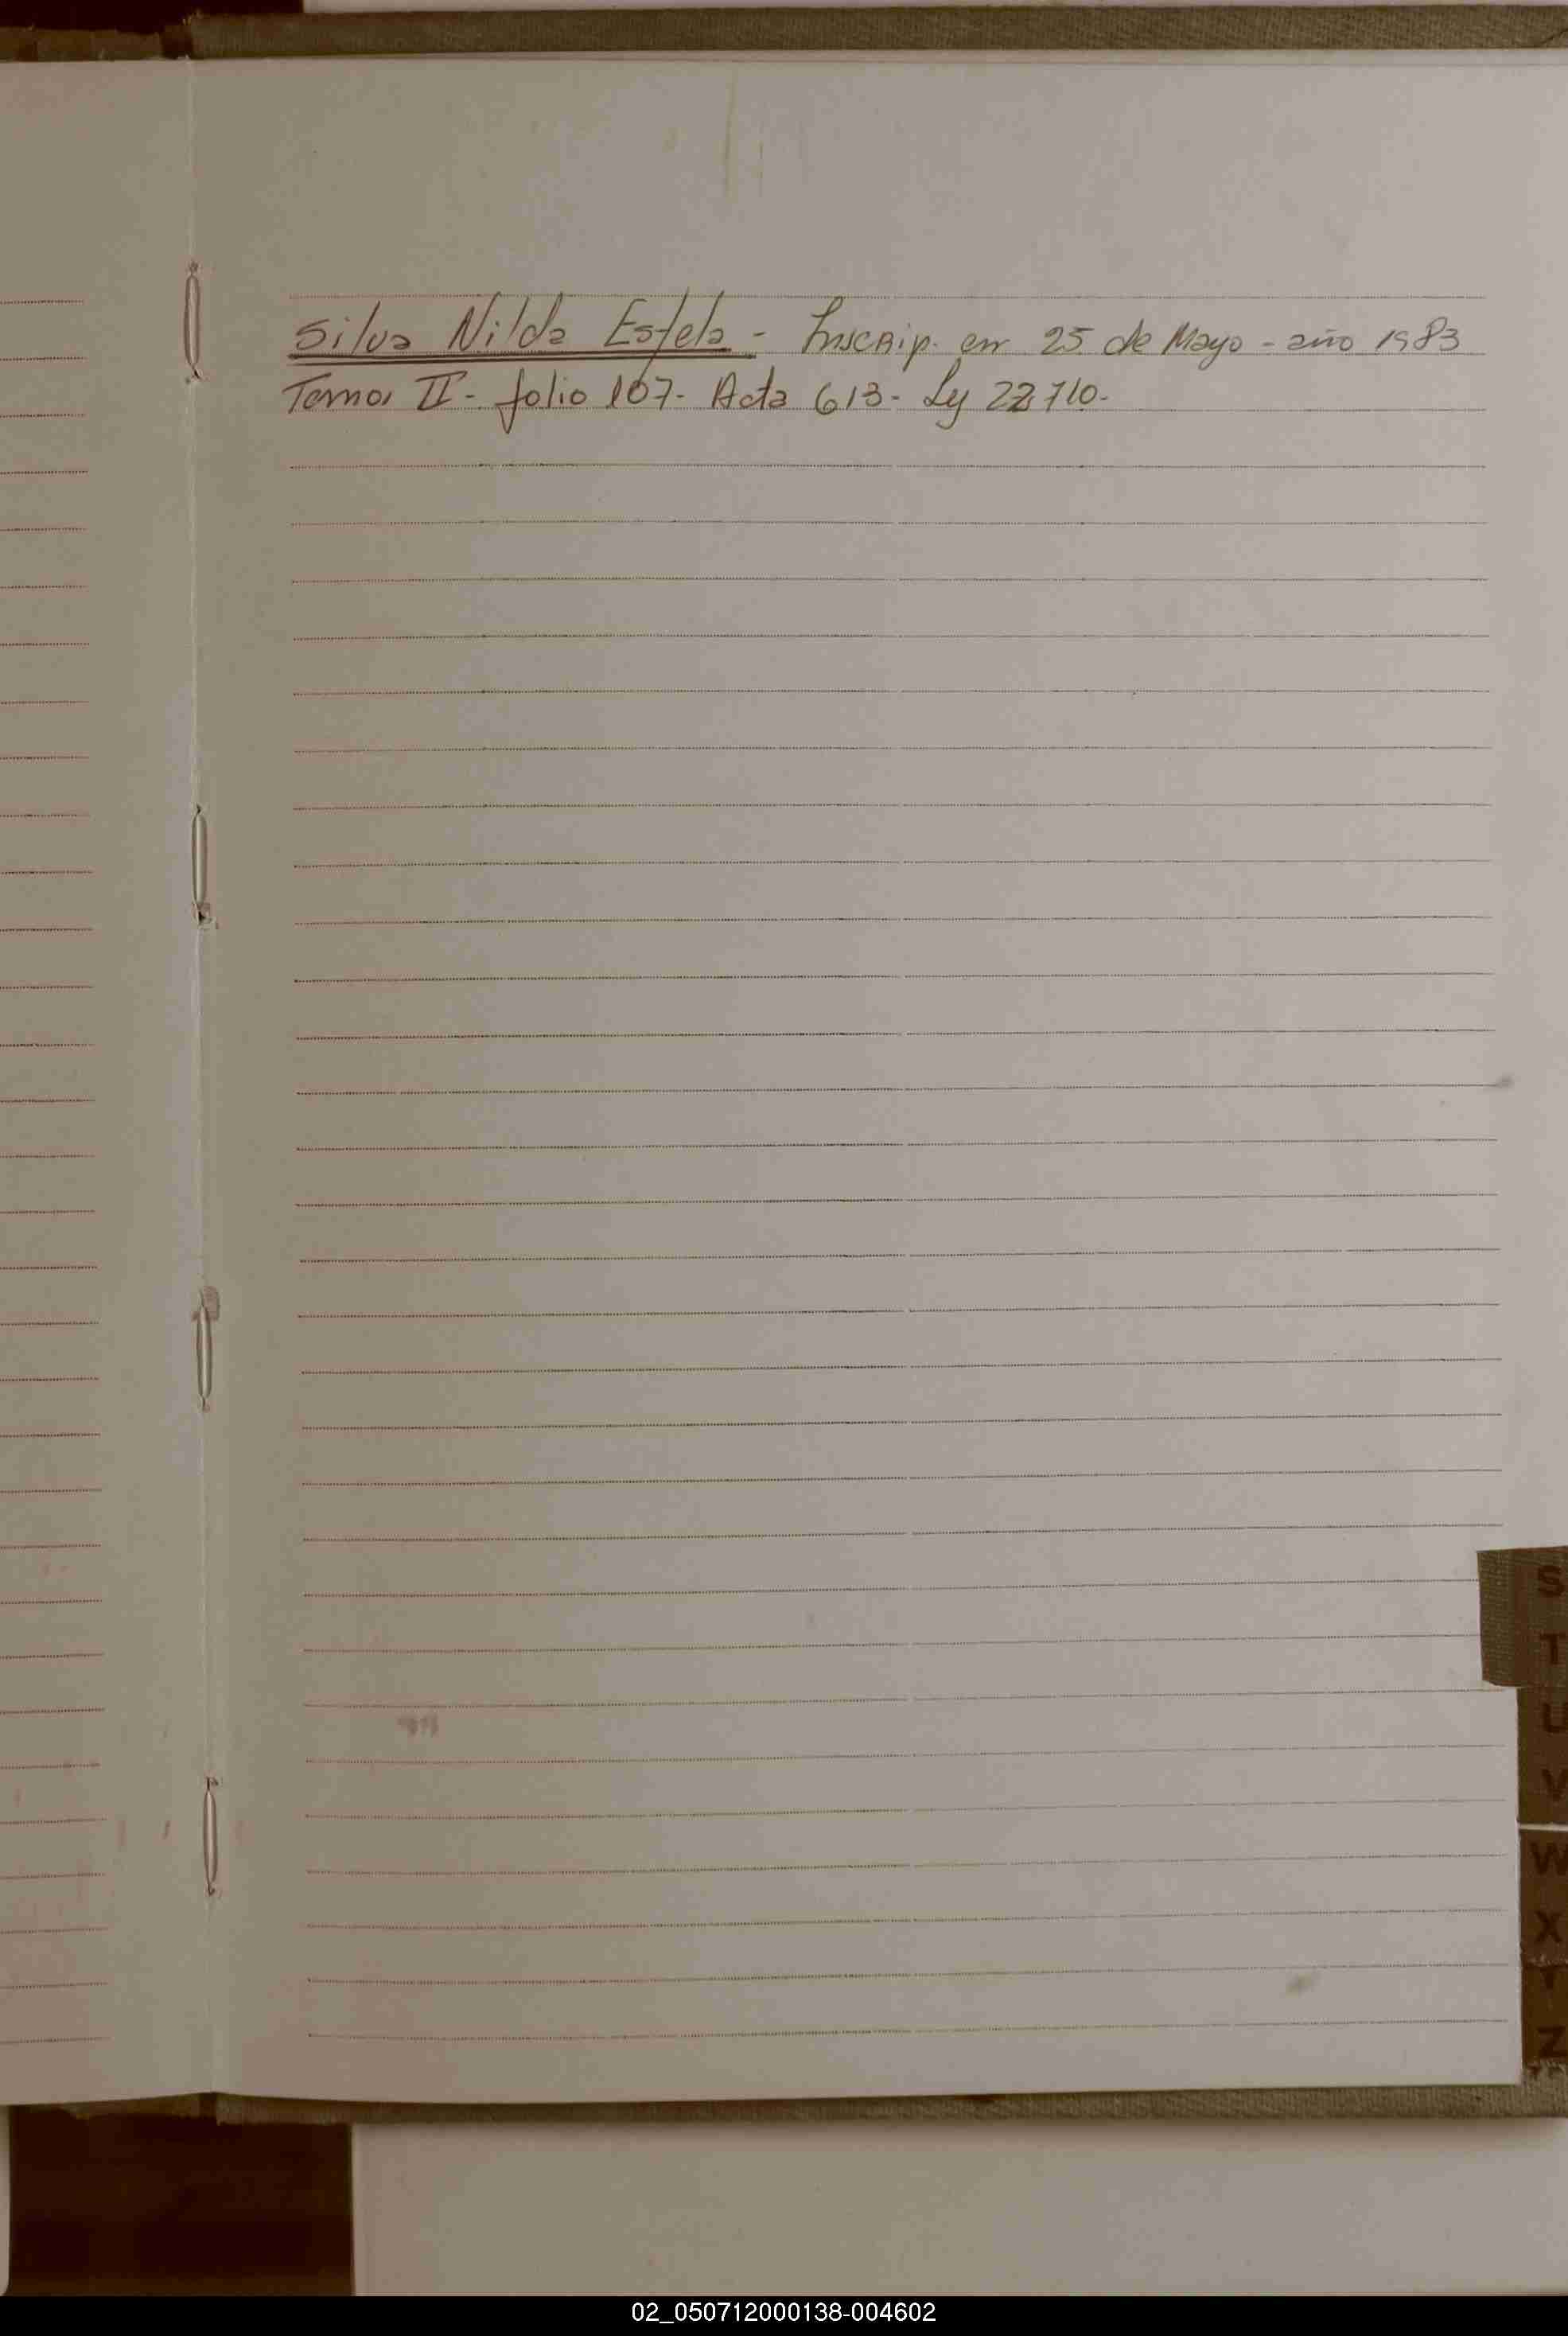 Silva Nilda Estela - Inscrip. en 25 de Mayo - año 1983
Tomo II - folio 107 - Acta 613 - Ley 22.710 -
S
T
U
V
W
X
Y
Z
02_050712000138-004602